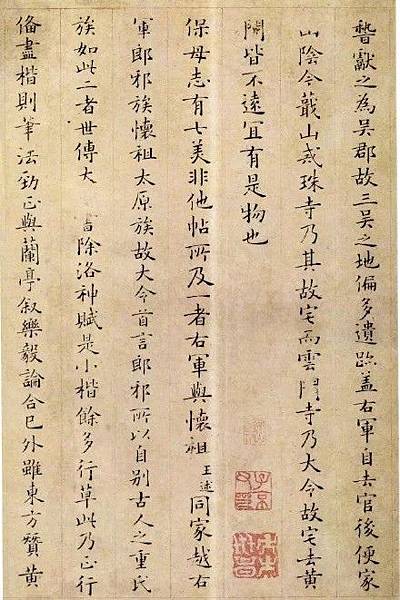 嘗獻之為吳郡故三吳之地偏多遺跡蓋右軍自去官後便家
山陰今蕺山戒珠寺乃其故宅而雲門寺乃大令故宅去黃
閍皆不遠宜有是物也
保母志有七美非他帖所及一者右軍與懷祖王述同家越右
軍郎邪族懷祖太原族故大令首言郎邪所以自別古人之重氏
族如此二者世傳大 書除洛神賦是小楷餘多行草此乃正行
俻盡楷則筆法勁正與蘭亭叙樂毅論合已外雖東方贊黃